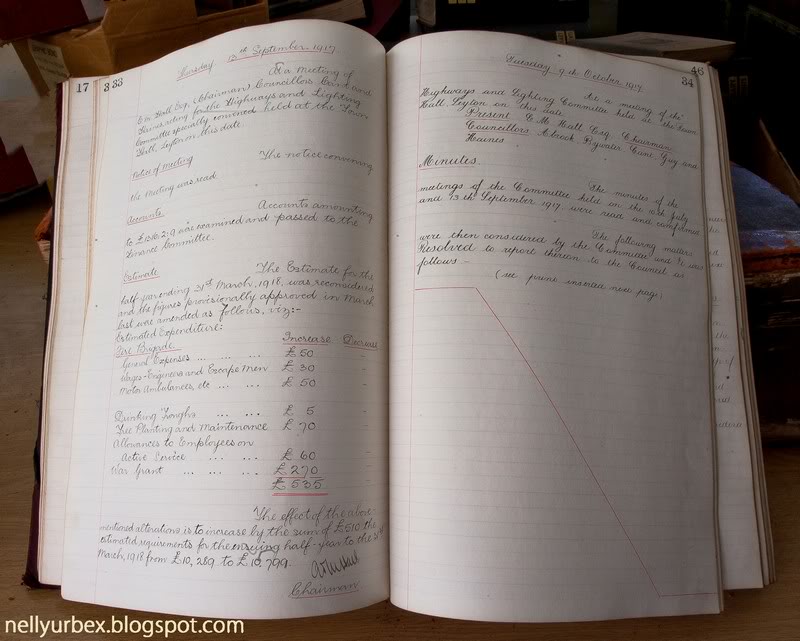 17 333
Thursday 13th September 1917.
At a meeting of
E. M. Hall Esq. (Chairman) Councillors Cant and
Haines acting for the Highways and Lighting
Committee specially convened held at the Town
Hall, Leyton on this date.
Notice of Meeting
The notice convening
the Meeting was read.
Accounts
Accounts amounting
to was examined and passed to the
Finance Committee.
Estimate
The Estimate for the
half year ending 31st March, 1918, was reconsidered
and the figures provisionally approved in March
last were amended as follows, viz:-
Estimated Expenditure:
Increase Decrease
Fire Brigade
General Expenses ... ... ... £ 50 -
Wages-Engineers and Escape Men £ 30 -
Motor Ambulances, etc ... ... £ 50 -
Drinking Troughs ... ... £ 5 -
Tree Planting and Maintenance £ 70 -
Allowances to Employees on
Active Service ... ... £ 60 -
War Grant ... ... ... £ 270 -
£ 535
The effect of the above-
mentioned alterations is to increase by the sum of £510 the
estimated requirements for the ensuing half-year to the 31st
March, 1918 from £10,289 to £10,799.
Chairman
46
34
Tuesday 9th October 1917.
At a meeting of the
Highways and Lighting Committee held at the Town
Hall, Leyton on this date
Present E. M. Hall Esq. Chairman
Councillors Bywater Cant, Guy and
Haines
Minutes.
The minutes of the
meetings of the Committee held on the July
and 13th September 1917 were read and confirmed
The following matters
were then considered by the Committee and it was
Resolved to report thereon to the Council as
follows:-
(see print inserted next page)
nellyurbex.blogspot.com